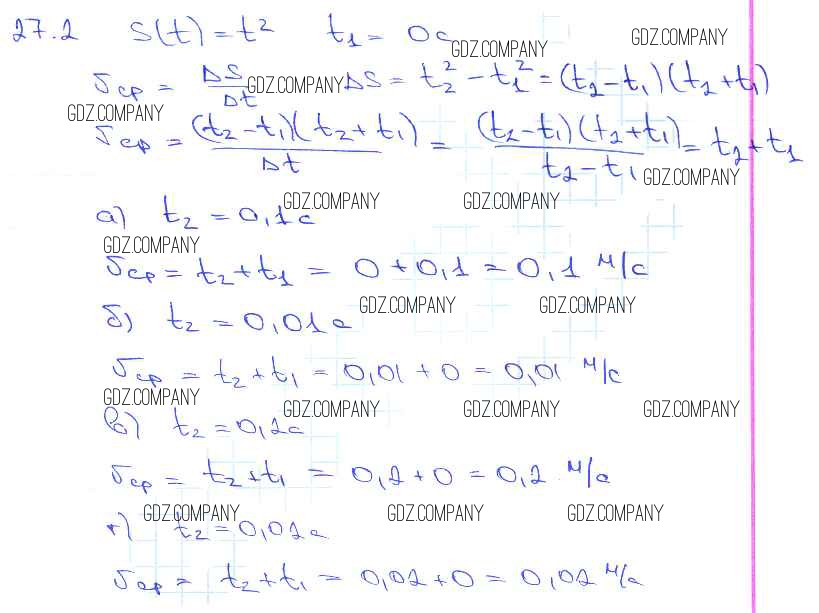 27.2 S(t) = t² t₁ = 0c
GDZ.COMPANY GDZ.COMPANY
υср = ΔS/Δt GDZ.COMPANY ΔS = t₂² - t₁² = (t₂-t₁)(t₂+t₁)
GDZ.COMPANY
υср = (t₂-t₁)(t₂+t₁)/Δt = (t₂-t₁)(t₂+t₁)/t₂-t₁ = t₂+t₁
GDZ.COMPANY
а) t₂ = 0,1c GDZ.COMPANY GDZ.COMPANY
GDZ.COMPANY
υср = t₂+t₁ = 0+0,1 = 0,1 м/с
GDZ.COMPANY GDZ.COMPANY
б) t₂ = 0,01c
υср = t₂+t₁ = 0,01+0 = 0,01 м/с
GDZ.COMPANY GDZ.COMPANY GDZ.COMPANY GDZ.COMPANY
в) t₂ = 0,2c
υср = t₂+t₁ = 0,2+0 = 0,2 м/с
GDZ.COMPANY GDZ.COMPANY GDZ.COMPANY
г) t₂ = 0,02c
υср = t₂+t₁ = 0,02+0 = 0,02 м/с